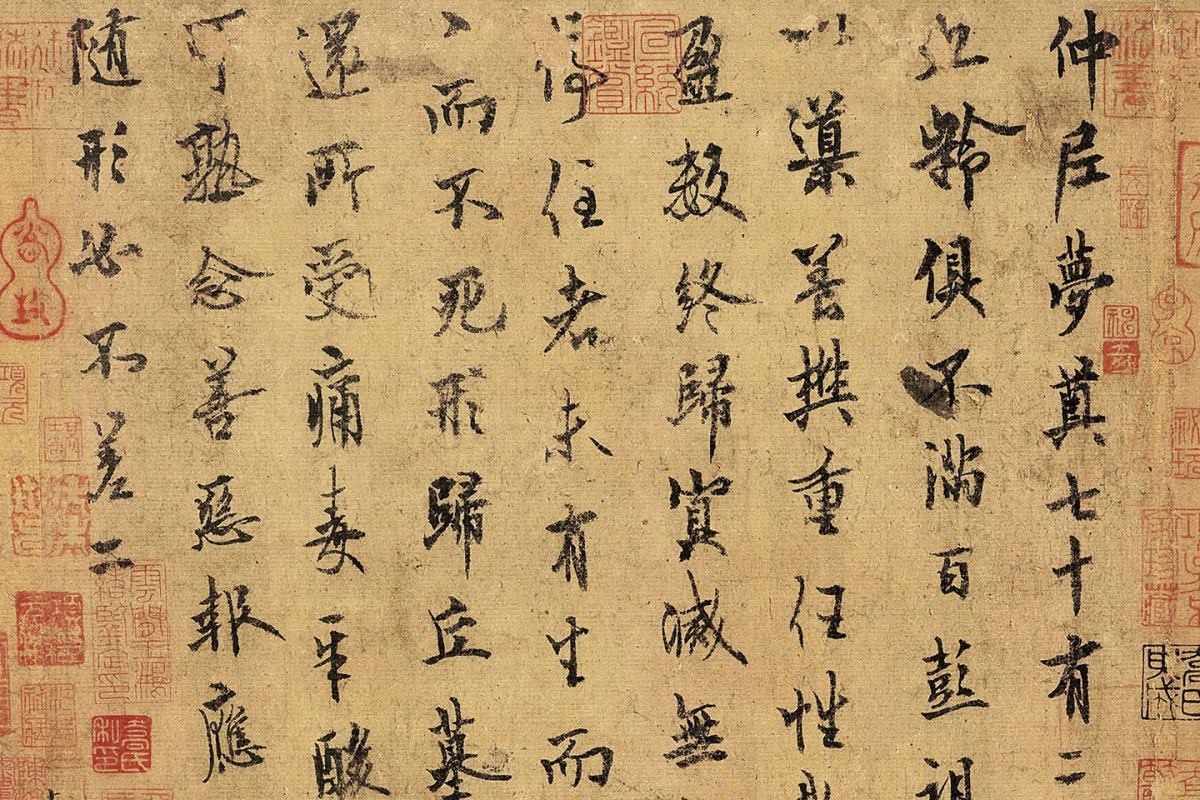 仲尼夢奠七十有二
齡俱不滿百彭祖
以導養樊重任性
盈數終歸冥滅無
停住者未有生而
而不死形歸丘墓
還所受痛毒辛酸
可熟念善惡報應
隨形必不差二
宣統鑑賞